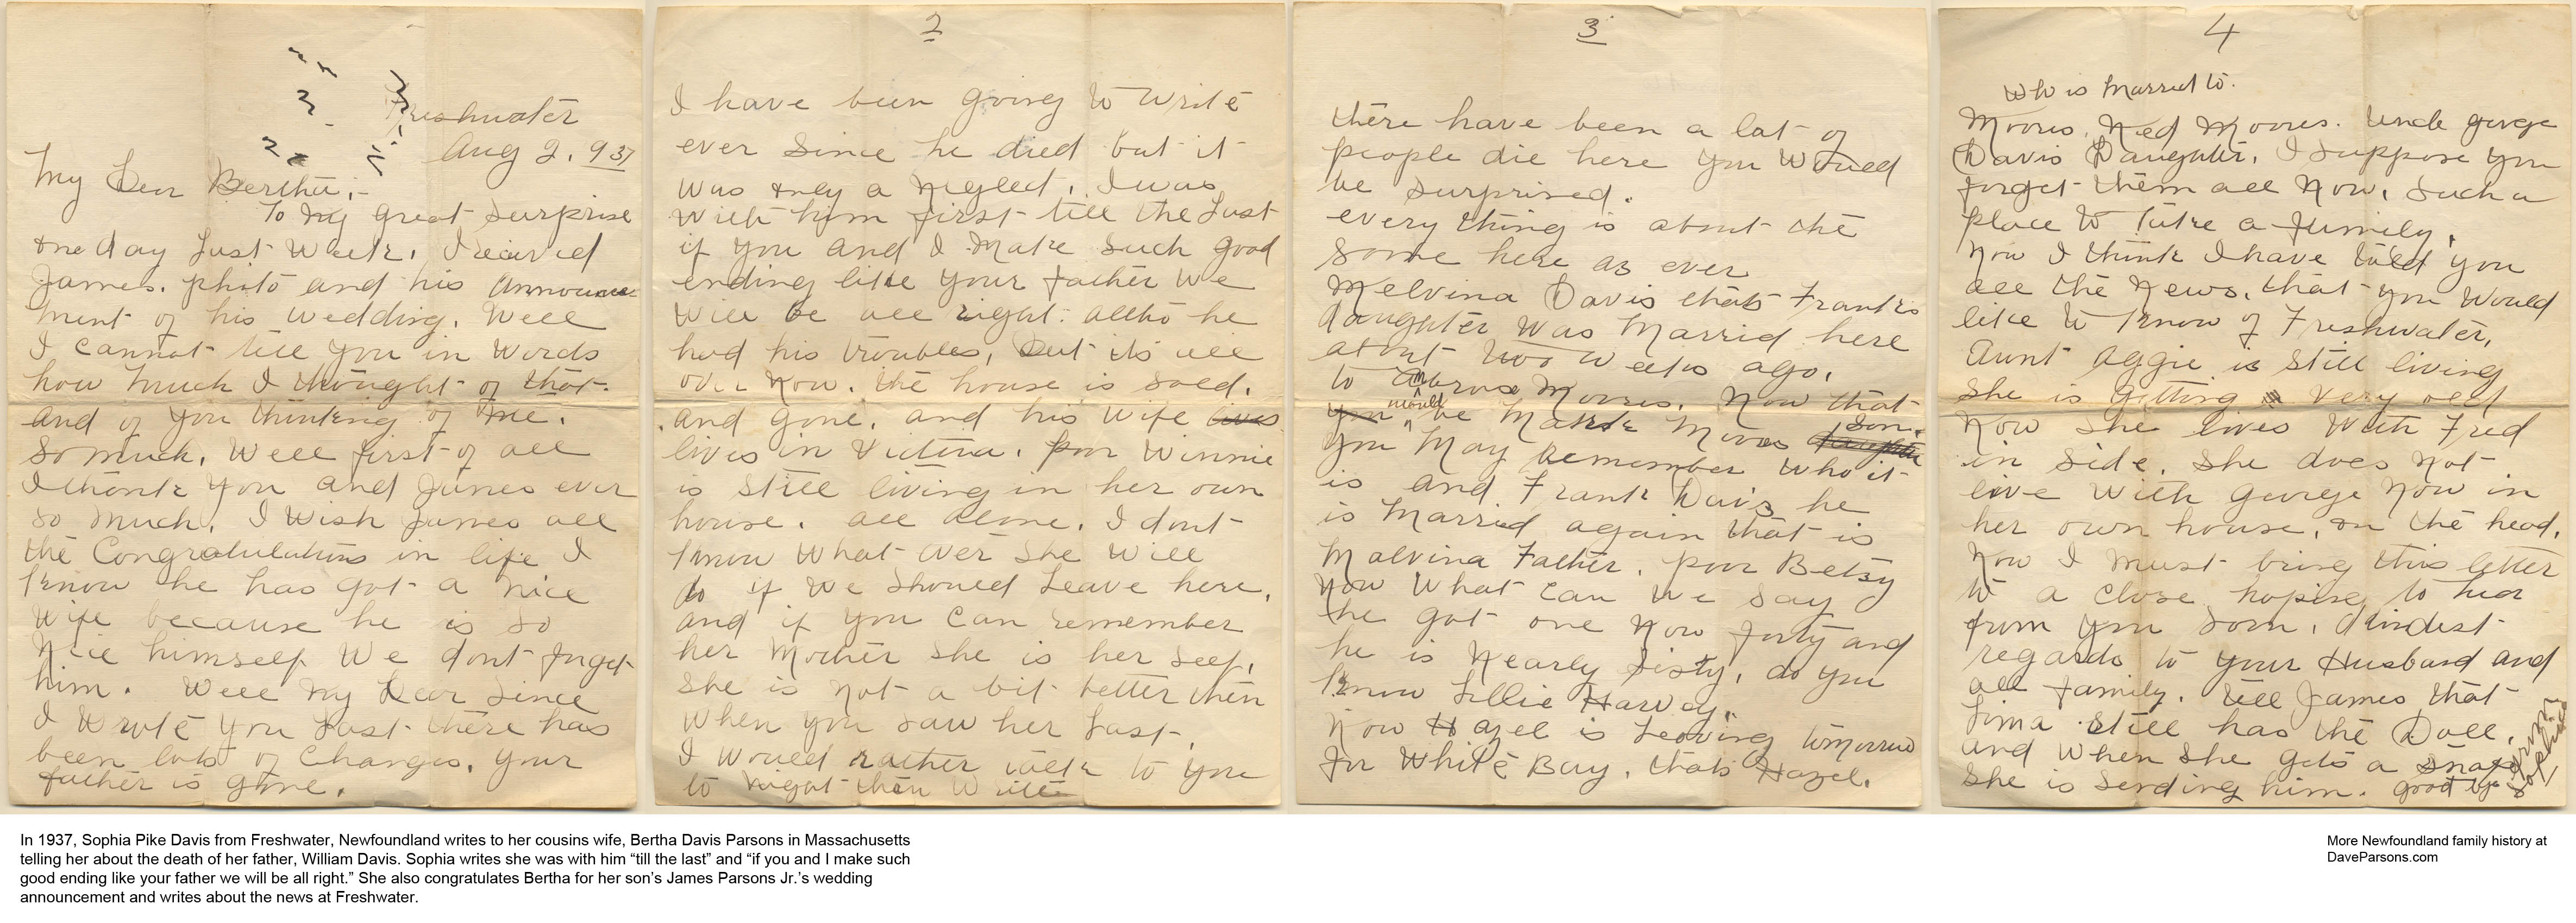 Freshwater
Aug 2, 937
My Dear Bertha,-
To my great surprise
one day Last Week, I recived
James. photo and his announce
ment of his Wedding. Well
I cannot tell you in Words
how much I thought of that.
and of you thinking of me.
So much. Well first of all
I thank you and James ever
so much. I Wish James all
the Congratulations in life I
know he has got a nice
Wife because he is so
Nice himself We dont forget
him. Well my Dear Since
I Wrote you Last there has
been lots of Changes, your
father is gone.
2
I have been going to Write
ever Since he died but it
was only a neglect. I was
With him first till the Last
if you and I Make such good
ending like your father We
Will be all right. alltho he
had his troubles, But its all
over Now. the house is sold.
and gone, and his Wife lives
lives in Victoria. poor Winnie
is still living in her own
house. all alone. I dont
know What over she Will
do if We should Leave here,
and if you can remember
her Mother she is her self,
she is not a bit better then
When you saw her Last.
I Would rather talk to you
to night then Write
3
there have been a lot of
people die here you Would
be surprised.
every thing is about the
same here as ever
Melvina Davis thats Frank's
daughter Was Marrid here
about two Weeks ago,
to Moores. Now that
you would be Moores daughter Son.
you May remember Who it
is and Frank Davis he
is Married again that is
Malvina Father. poor Betsy
Now What can We say
he got one Now forty and
he is Nearly Sisty, do you
know Lillie Harvey,
Now Hazel is Leaving tomorrow
for White Bay. thats Hazel.
4
Who is Married to.
Moores, Ned Moores. Uncle george
Davis Daughter. I suppose you
forget them all Now, Such a
place to take a family,
Now I think I have told you
all the News, that you Would
like to know of Freshwater,
Aunt Aggie is still living
she is getting Very old
Now she lives With Fred
in side. she does not
live With George Now in
her own house, on the head,
Now I must bring this letter
to a close hoping to hear
from you soon,
regards to your Husband and
all family. tell James that
still has the Doll,
and When she gets a snap
she is sending him. good bye
from
Sophia
In 1937, Sophia Pike Davis from Freshwater, Newfoundland writes to her cousins wife, Bertha Davis Parsons in Massachusetts
telling her about the death of her father, William Davis. Sophia writes she was with him “till the last” and “if you and I make such
good ending like your father we will be all right.” She also congratulates Bertha for her son’s James Parsons Jr.’s wedding
announcement and writes about the news at Freshwater.
More Newfoundland family history at
DaveParsons.com